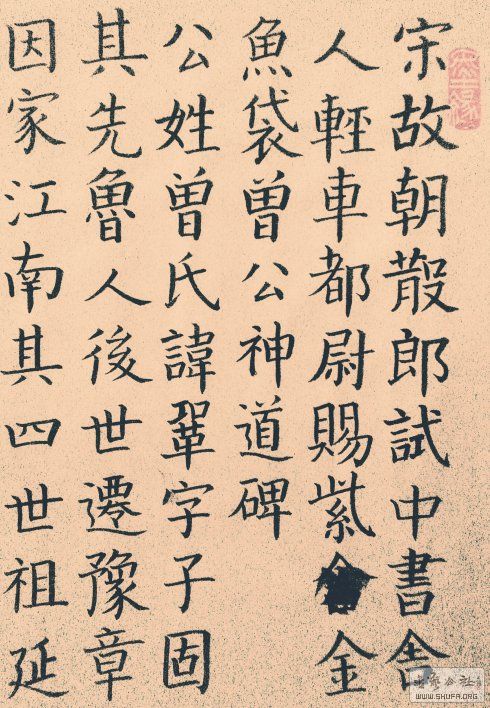 宋故朝散郎試中書舍
人輕車都尉賜紫金
魚袋曾公神道碑
公姓曾氏諱鞏字子固
其先魯人後世遷豫章
因家江南其四世祖延
WWW.SHUFA.ORG